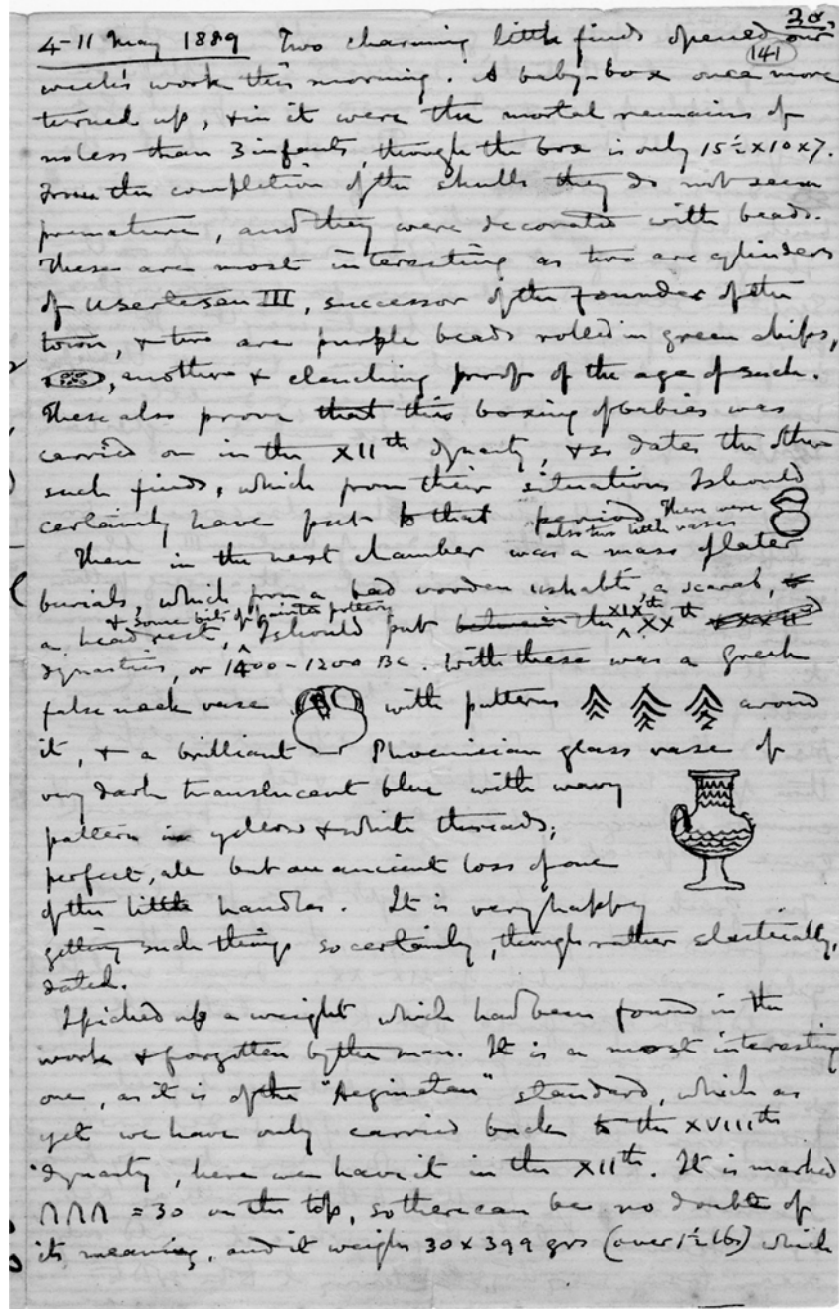 28.
4-11 May 1889 Two charming little finds opened our
(141)
week's work this morning. A baby-box once more
turned up, & in it were the mortal remains of
no less than 3 infants, though the box is only 15½ x 10 x 7.
From the completion of the skulls they do not seem
premature, and they were decorated with beads.
These are most interesting as two are cylinders
of Usertesen III, successor of the founder of the
town, & two are purple beads rolled in green chips,
, another & clenching proof of the age of such.
These also prove that this boxing of babies was
carried on in the XIIth dynasty, & so dates the other
such finds, which from their situations I should
certainly have put to that period There were
also two little vases
Then in the next chamber was a mass of later
burials, which from a bad wooden ushabti, a scarab,
& some bits of painted pottery
a head rest, I should put between the XIXth XXth
dynasties, or 1400-1200 BC. With these was a Greek
false neck vase with patterns around
it, & a brilliant Phoenician glass vase of
very dark translucent blue with wavy
pattern in yellow & white threads;
perfect, all but an ancient loss of one
of the little handles. It is very happy
getting such things so certainly, though rather elastically,
dated.
I picked up a weight which had been found in the
work & forgotten by the man. It is a most interesting
one, as it is of the "Aeginetan" standard, which as
yet we have only carried back to the XVIIIth
dynasty, here we have it in the XIIth. It is marked
∩∩∩ = 30 on the top, so there can be no doubt of
its meaning, and it weighs 30 x 399 grs (over 1½ lbs) which